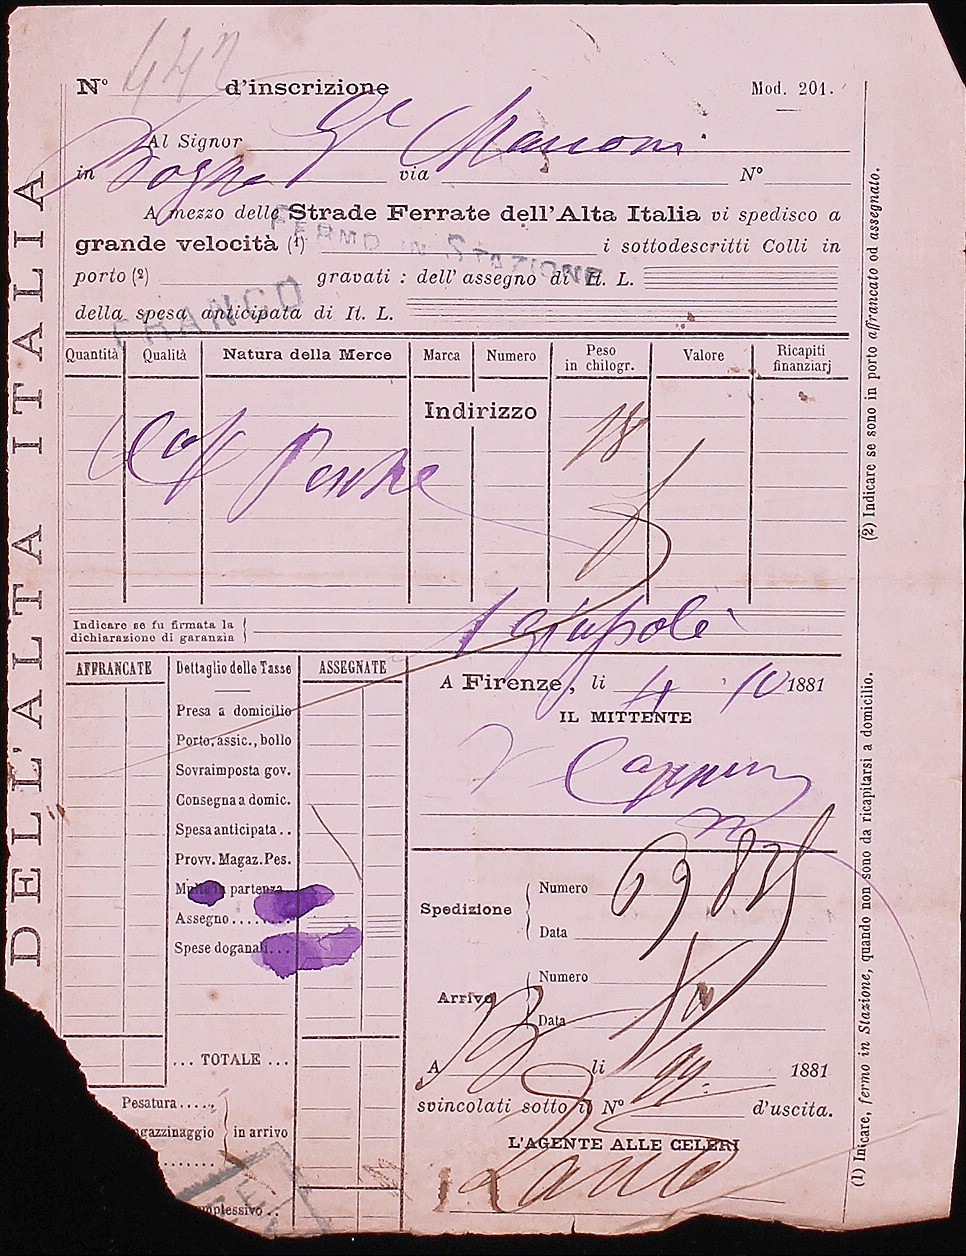 DELL'ALTA ITALIA
Nº 442 d'inscrizione
Mod. 201.
Al Signor Manoni
in via Nº
A mezzo delle Strade Ferrate dell'Alta Italia vi spedisco a
grande velocità (1) i sottodescritti Colli in
FERMO IN STAZIONE
porto (2) gravati : dell'assegno di It. L.
FRANCO
della spesa anticipata di It. L.
Quantità Qualità Natura della Merce Marca Numero Peso in chilogr. Valore Ricapiti finanziarj
Indirizzo
18
Pesche
Indicare se fu firmata la
dichiarazione di garanzia
AFFRANCATE Dettaglio delle Tasse ASSEGNATE
Presa a domicilio
Porto, assic., bollo
Sovraimposta gov.
Consegna a domic.
Spesa anticipata..
Provv. Magaz. Pes.
Multe in partenza
Assegno......
Spese doganali...
... TOTALE ...
Pesatura.....
gazzinaggio in arrivo
mplessivo..
A Firenze, li 4 10 1881
IL MITTENTE
Spedizione Numero
Data
Arrivo Numero
Data
A li 1881
svincolati sotto il Nº d'uscita.
L'AGENTE ALLE CELERI
(2) Indicare se sono in porto affrancato od assegnato.
(1) Inicare, fermo in Stazione, quando non sono da ricapitarsi a domicilio.